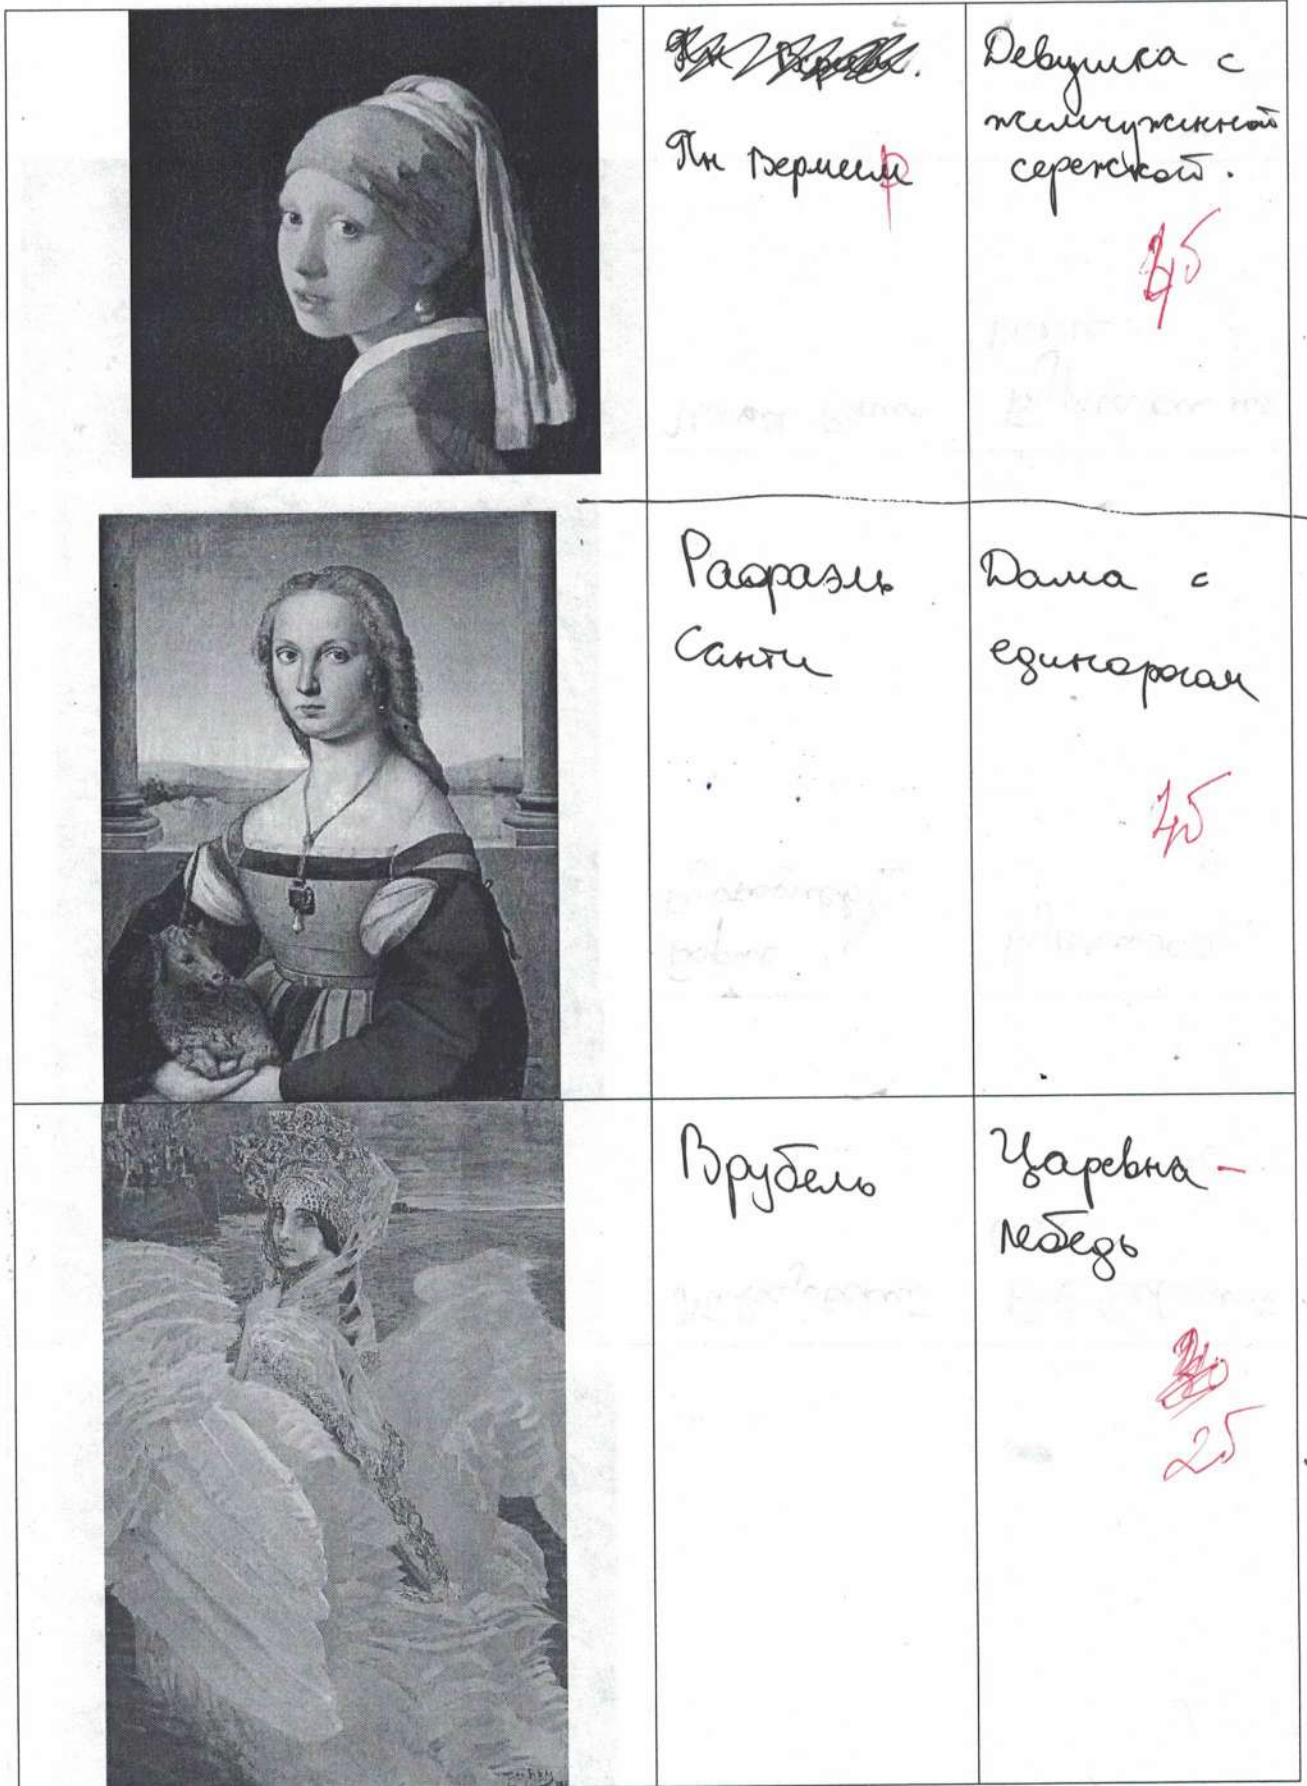 Ян
Девушка с
жемчуженной
сережкой.
Рафаэль
Санти
Дама с
единорогом
Врубель
Царевна -
лебедь
2б